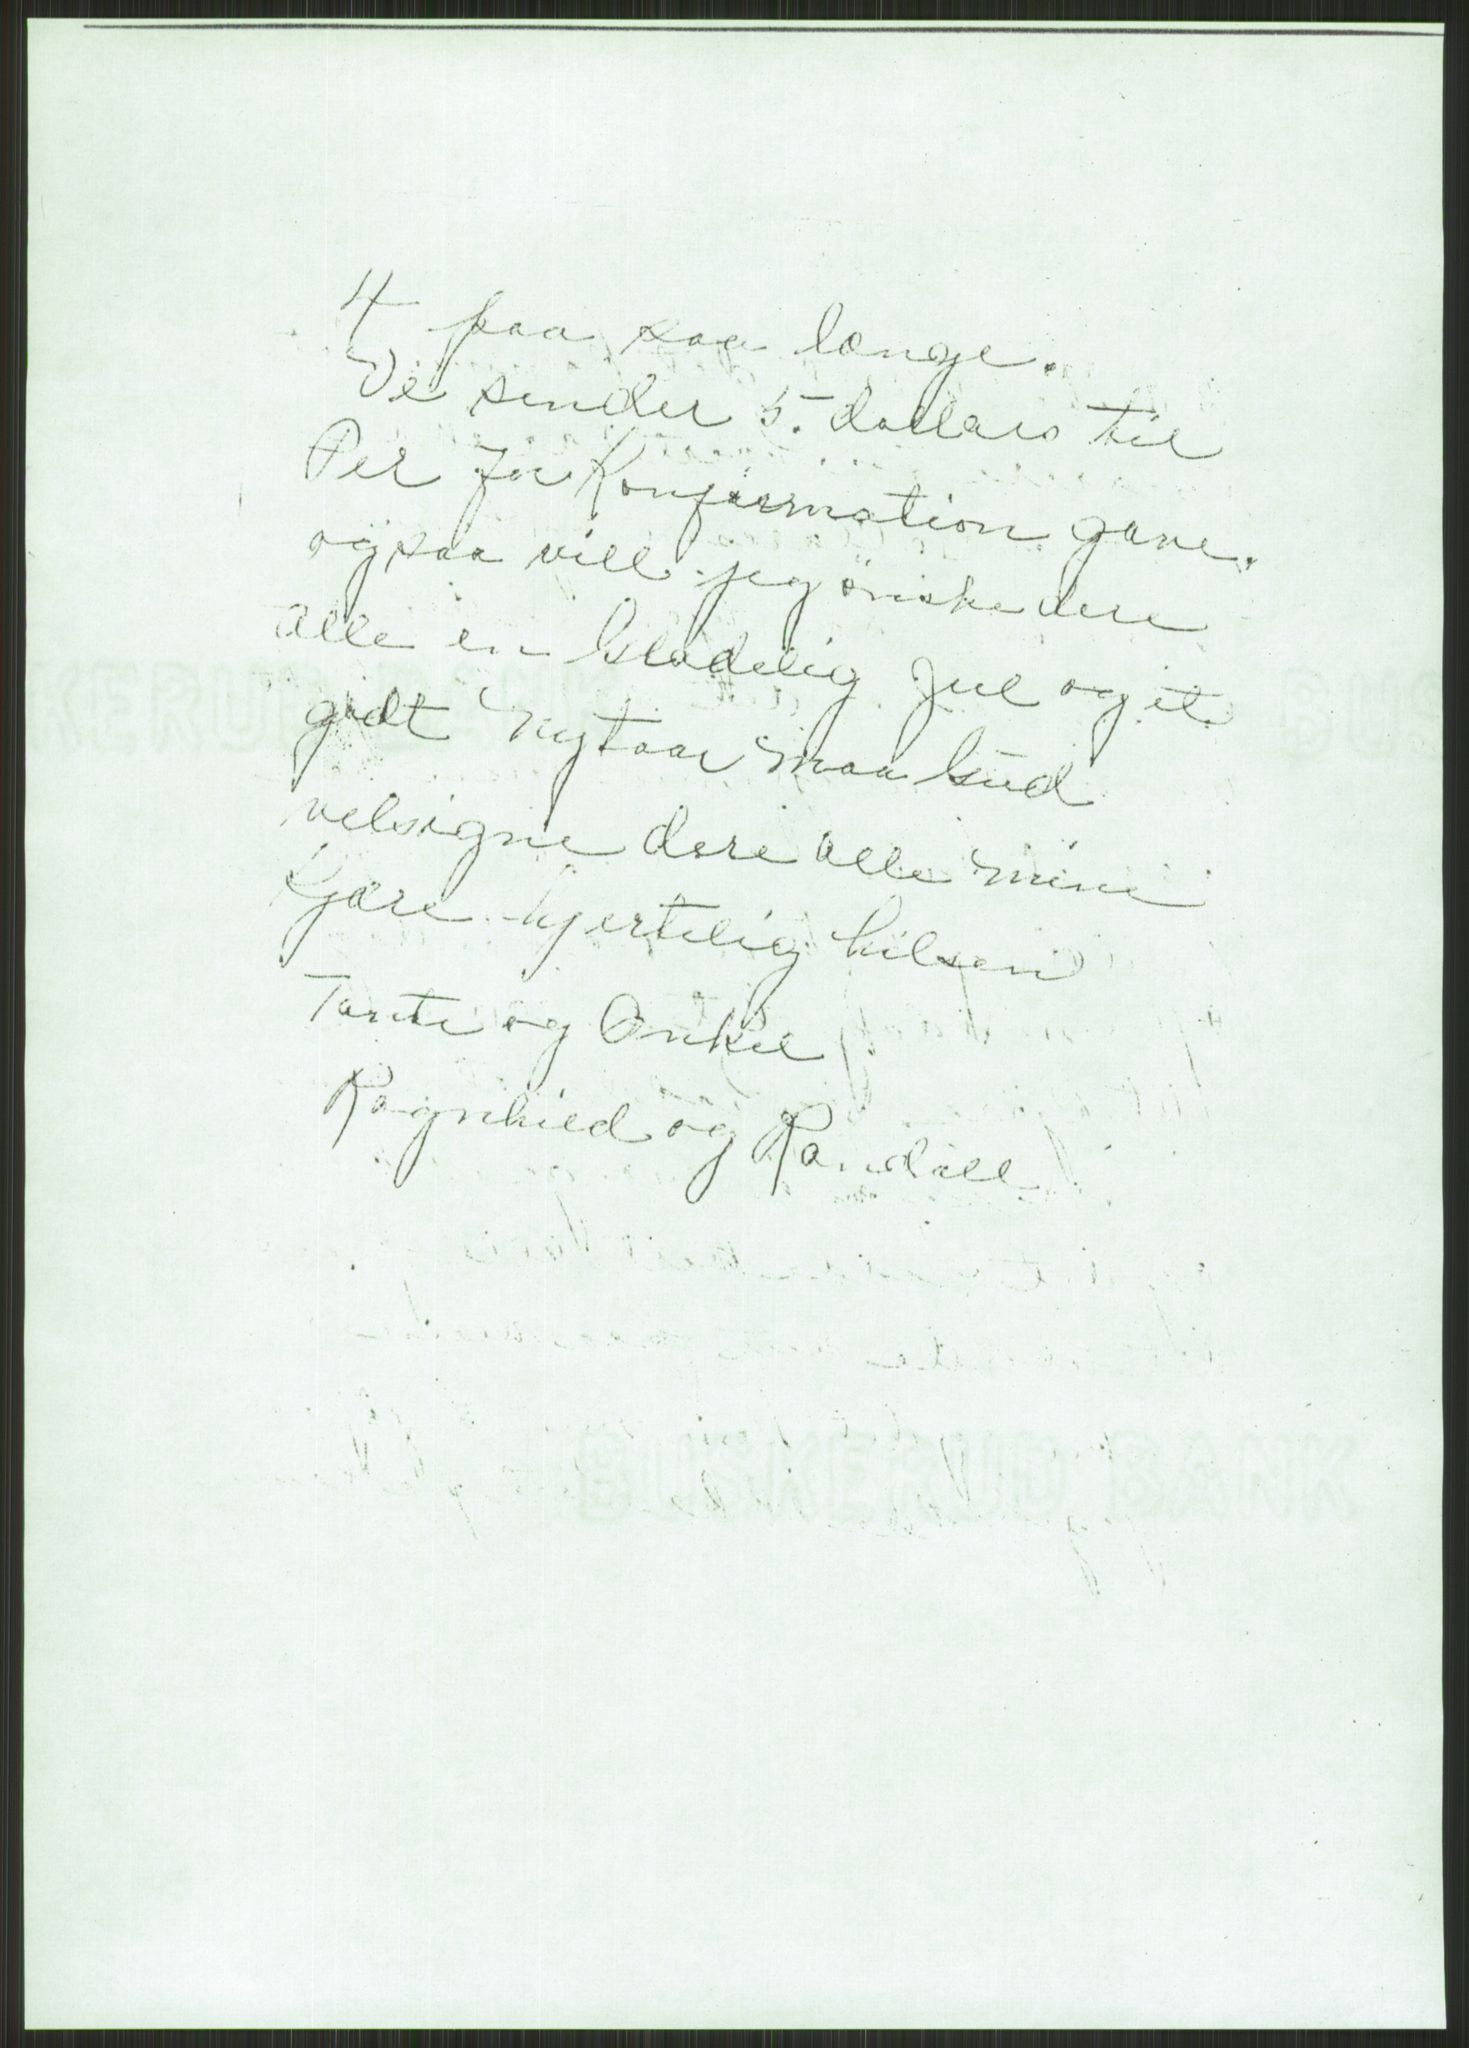 4 paa saa lenge.
Vi sender 5. dollars til
Per for Konfirmation gave.
ogsaa vill jeg önske dere
alle en Gladelig Jul og et
godt Nytaar maa Gud
velsigne dere alle mine
Kjære hjertelig hilsen
Tante og Onkel
Ragnhild og Randall
BUSKERUD BANK